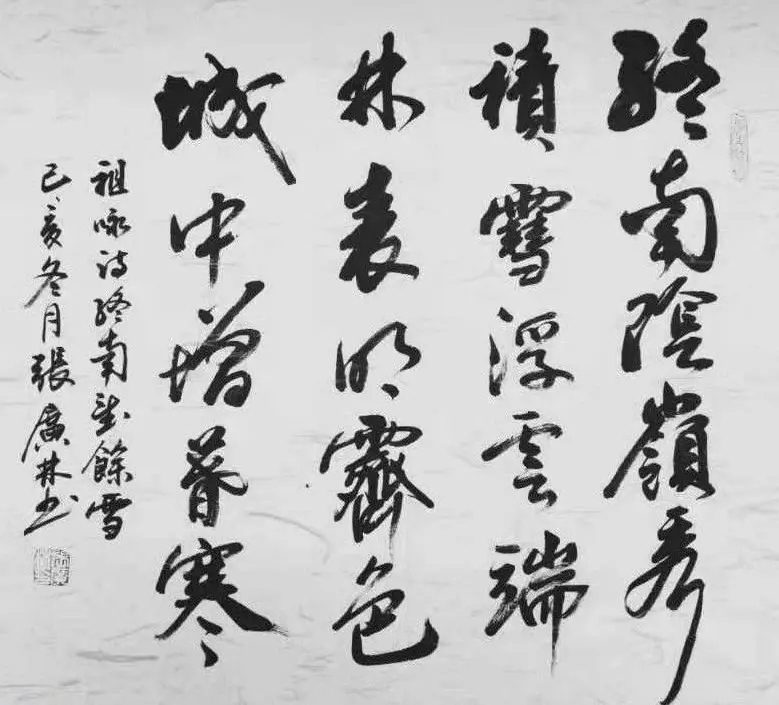 終南陰嶺秀
積雪浮雲端
林表明霽色
城中增暮寒
祖咏诗終南望餘雪
己亥冬月張廣林书